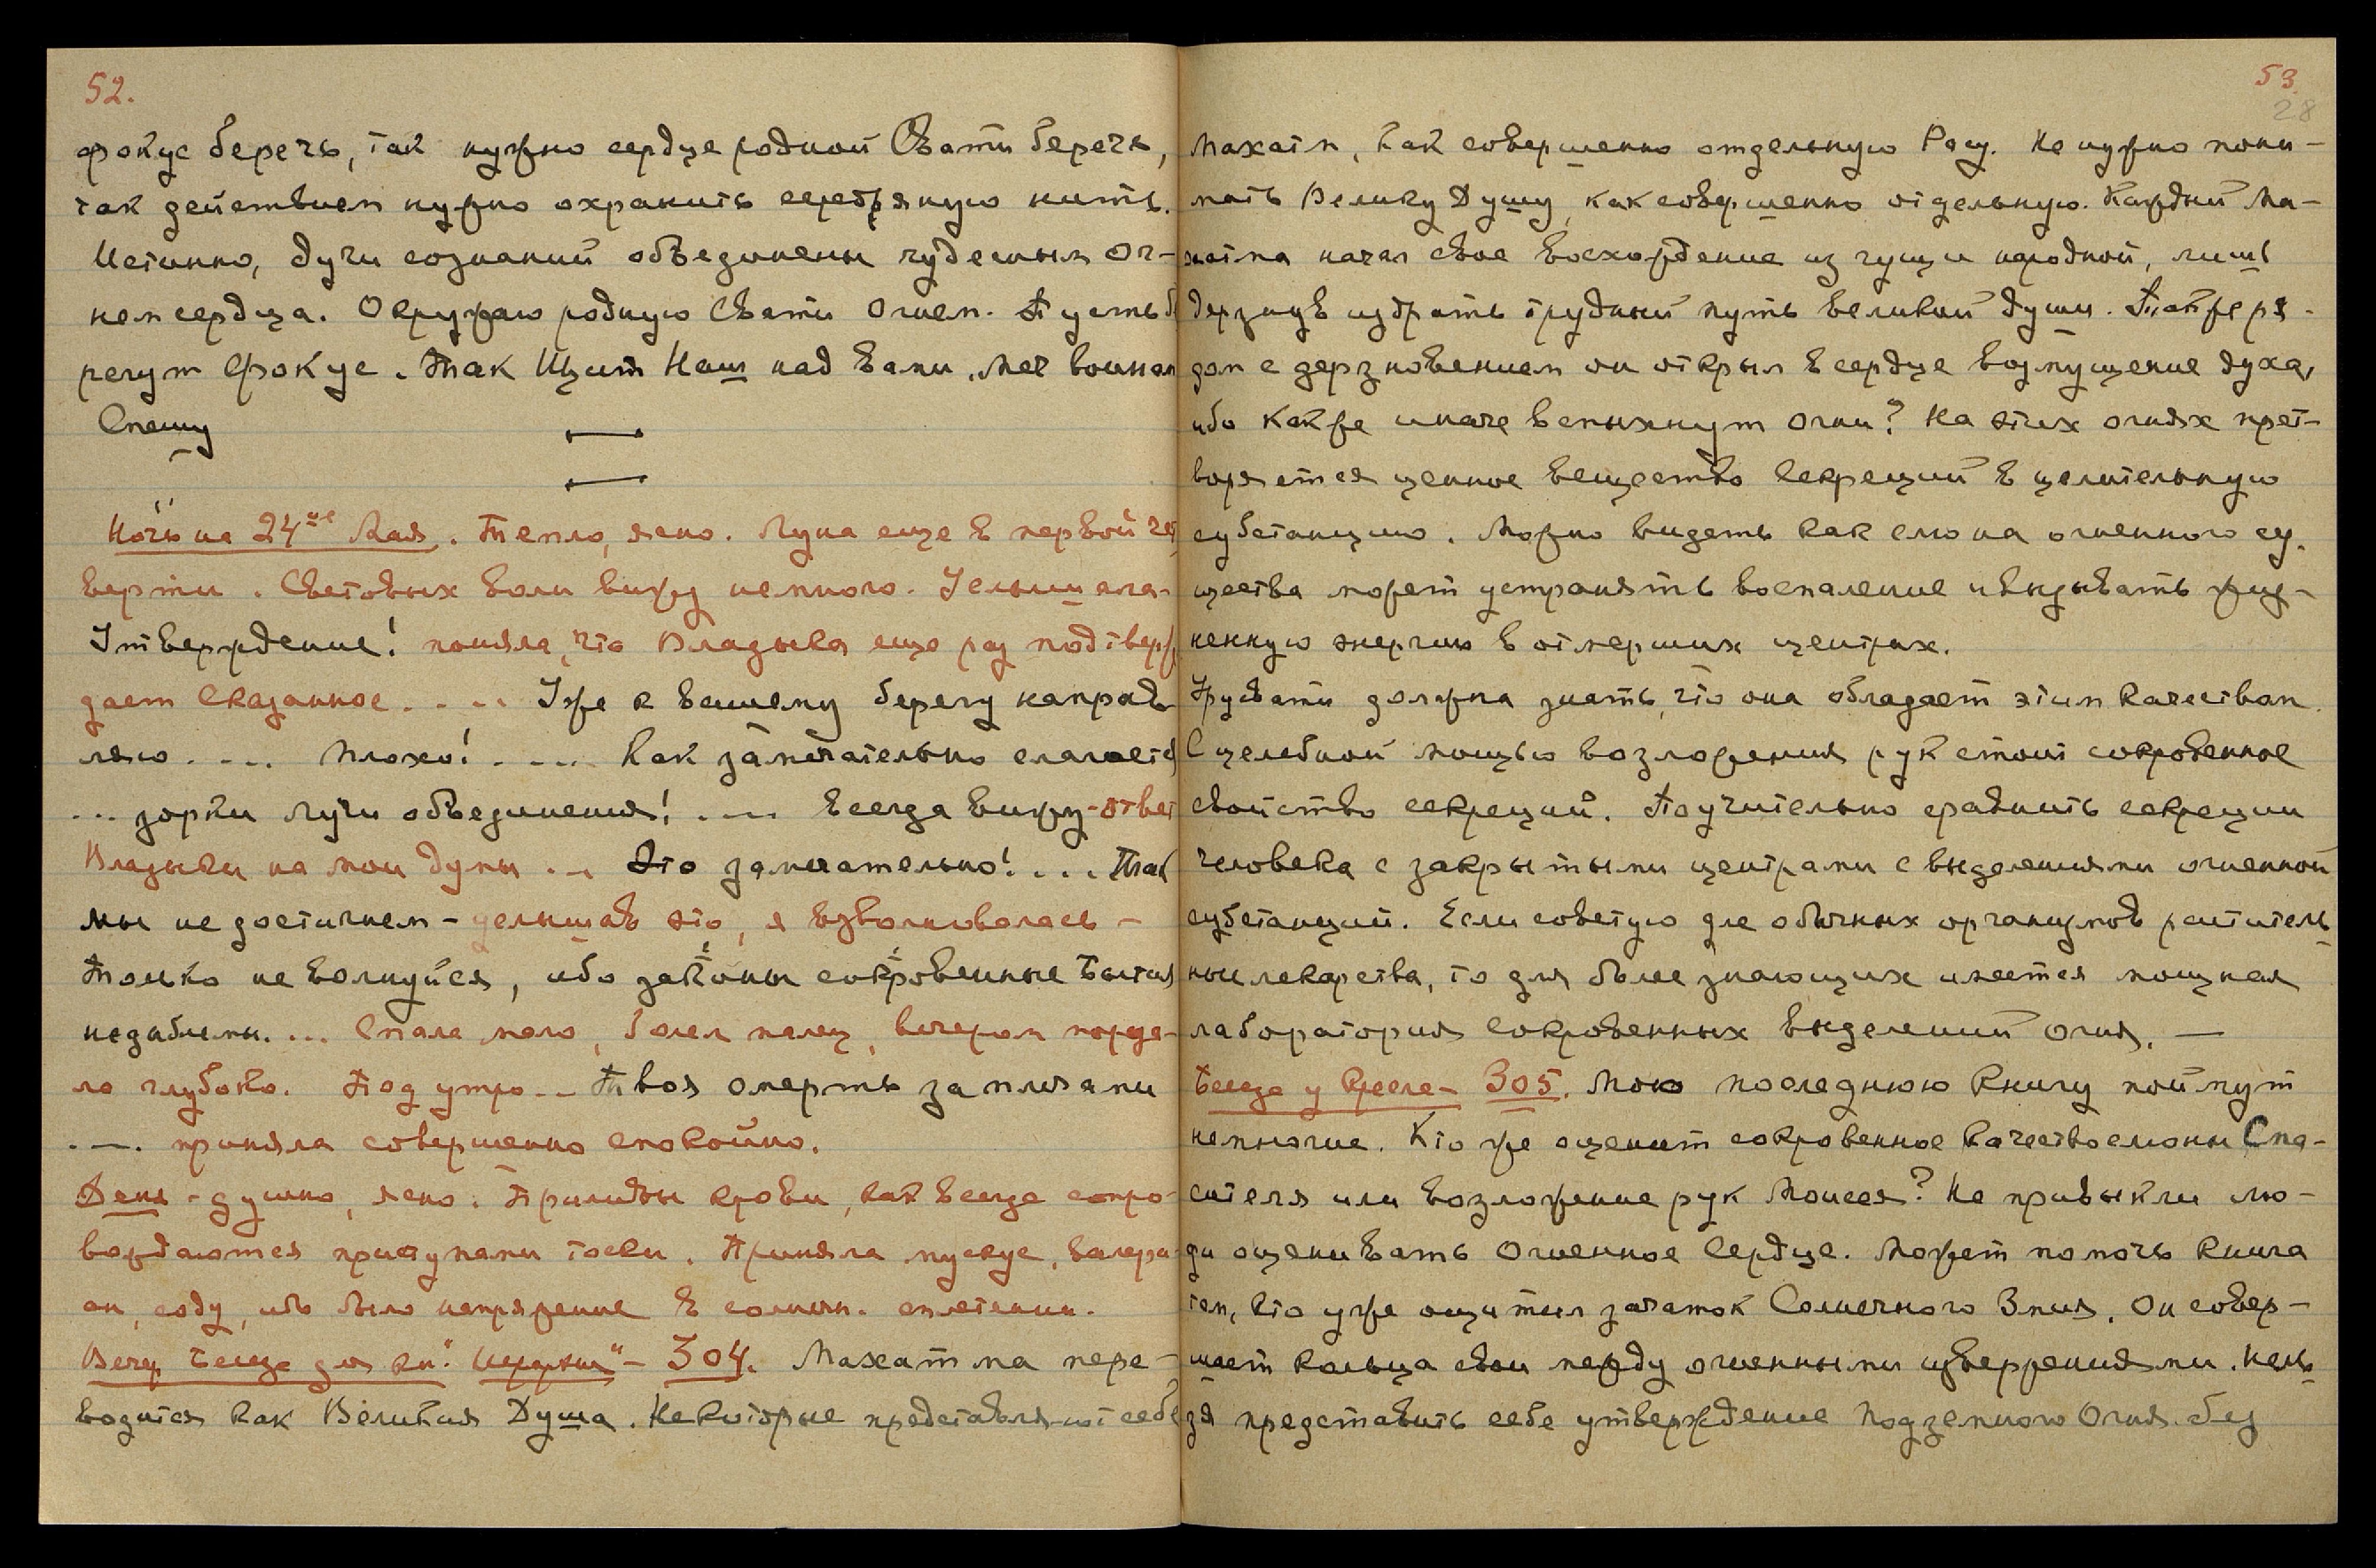 52.
фокус беречь, так нужно сердце родной Свати беречь,
так действием нужно охранить серебряную нить.
Истинно, лучи сознаний объединены чудесным ог-
нем сердца. Окружаю родную Свати Огнем. Пусть бе
регут Фокус. Так Щит Наш над вами. Меч воинам
Спешу
Ночь на 24ое Мая. Тепло, ясно. Луна еще в первой чет
верти. Световых волн вижу немного. Услышала-
Утверждение! поняла, что Владыка еще раз подтверж
дает сказанное .... Уже к вашему берегу направ
ляю .... Плохо! .... Как замечательно слагается
... зорки лучи объединения! .... Всегда вижу - ответ
Владыки на мои думы ... Это замечательно! .... Так
мы не достигнем - услышав это, я взволновалась -
Только не волнуйся, ибо законы сокровенные Бытия
неднблемы. ... Спала мало, болел палец, вечером пореза-
ла глубоко. Под утро .. Твоя смерть за плечами
.... приняла совершенно спокойно.
День - душно, ясно. Приливы крови, как всегда сопро-
вождаются приступами тоски. Приняла мускус, валери
ан, соду, ибо было напряжение в солнечн. сплетении.
Вечер Беседа для кн. "Иерархия" - 304. Махатма пере-
водится как Великая Душа. Некоторые представляют себе
53.
28
Махатм, как совершенно отдельную Расу. Не нужно пони-
мать Велику Душу, как совершенно отдельную. Каждый Ма-
хатма начал свое восхождение из гущи народной, лишь
дерзнув избрать трудный путь великой души. Тайжеря-
дом с дерзновением он открыл в сердце возмущение духа,
ибо как же иначе вспыхнут огни? На этих огнях прет-
воряется ценное вещество секреций в целительную
субстанцию. Можно видеть как слюна огненного су.
щества может устранять воспаление и вызывать жиз-
ненную энергию в отмерших центрах.
Урусвати должна знать, что она обладает этим качеством.
С целебной мощью возложения рук стоит сокровенное
свойство секреций. Поучительно сравнить секреции
человека с закрытыми центрами с выделениями огненной
субстанций. Если советую для обычных организмов раститель
ные лекарства, то для более знающих имеется мощная
лаборатория сокровенных выделений огня. —
Беседа у Кресла - 305. Мою последнюю Книгу поймут
немногие. Кто же оценит сокровенное качество слюны Спа-
сителя или возложение рук Моисея? Не привыкли лю-
ди оценивать Огненное Сердце. Может помочь книга
тем, кто уже ощутил зачаток Солнечного Змия. Он совер-
шает кольца свои между огненными извержениями. Нель
зя представить себе утверждение Подземного Огня без